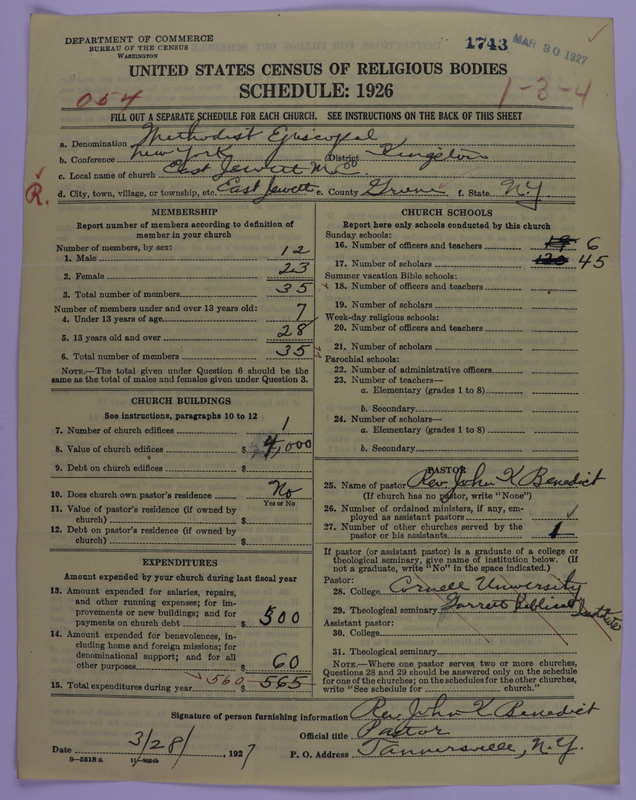 DEPARTMENT OF COMMERCE
BUREAU OF THE CENSUS
WASHINGTON
1743 MAR 30 1927
UNITED STATES CENSUS OF RELIGIOUS BODIES
SCHEDULE: 1926
054
1-3-4
FILL OUT A SEPARATE SCHEDULE FOR EACH CHURCH. SEE INSTRUCTIONS ON THE BACK OF THIS SHEET
a. Denomination Methodist Episcopal
b. Conference New York (District) Kingston
c. Local name of church East Jewett M.E.
R.
d. City, town, village, or township, etc. East Jewett e. County Greene f. State N.Y.
MEMBERSHIP
Report number of members according to definition of
member in your church
Number of members, by sex:
1. Male 12
2. Female 23
3. Total number of members 35
Number of members under and over 13 years old:
4. Under 13 years of age 7
5. 13 years old and over 28
6. Total number of members 35
NOTE.—The total given under Question 6 should be the
same as the total of males and females given under Question 3.
CHURCH BUILDINGS
See instructions, paragraphs 10 to 12
7. Number of church edifices 1
8. Value of church edifices $ 4,000
9. Debt on church edifices $
10. Does church own pastor's residence No
Yes or No
11. Value of pastor's residence (if owned by
church) $
12. Debt on pastor's residence (if owned by
church) $
EXPENDITURES
Amount expended by your church during last fiscal year
13. Amount expended for salaries, repairs,
and other running expenses; for im-
provements or new buildings; and for
payments on church debt $ 500
14. Amount expended for benevolences, in-
cluding home and foreign missions; for
denominational support; and for all
other purposes 60
15. Total expenditures during year 560 $ 565
CHURCH SCHOOLS
Report here only schools conducted by this church
Sunday schools:
16. Number of officers and teachers 19 6
17. Number of scholars 120 45
Summer vacation Bible schools:
18. Number of officers and teachers
19. Number of scholars
Week-day religious schools:
20. Number of officers and teachers
21. Number of scholars
Parochial schools:
22. Number of administrative officers
23. Number of teachers—
a. Elementary (grades 1 to 8)
b. Secondary
24. Number of scholars—
a. Elementary (grades 1 to 8)
b. Secondary
PASTOR
25. Name of pastor Rev. John K Benedict
(If church has no pastor, write "None")
26. Number of ordained ministers, if any, em-
ployed as assistant pastors
27. Number of other churches served by the
pastor or his assistants 1
If pastor (or assistant pastor) is a graduate of a college or
theological seminary, give name of institution below. (If
not a graduate, write "No" in the space indicated.)
Pastor:
28. College Cornell University
29. Theological seminary Garrett Biblical Institute
Assistant pastor:
30. College
31. Theological seminary
NOTE.—Where one pastor serves two or more churches,
Questions 28 and 29 should be answered only on the schedule
for one of the churches; on the schedules for the other churches,
write "See schedule for church."
Signature of person furnishing information Rev. John K Benedict
Official title Pastor
Date 3/28/, 1927 P. O. Address Tannersville, N.Y.
8—5518 a 11—9054b